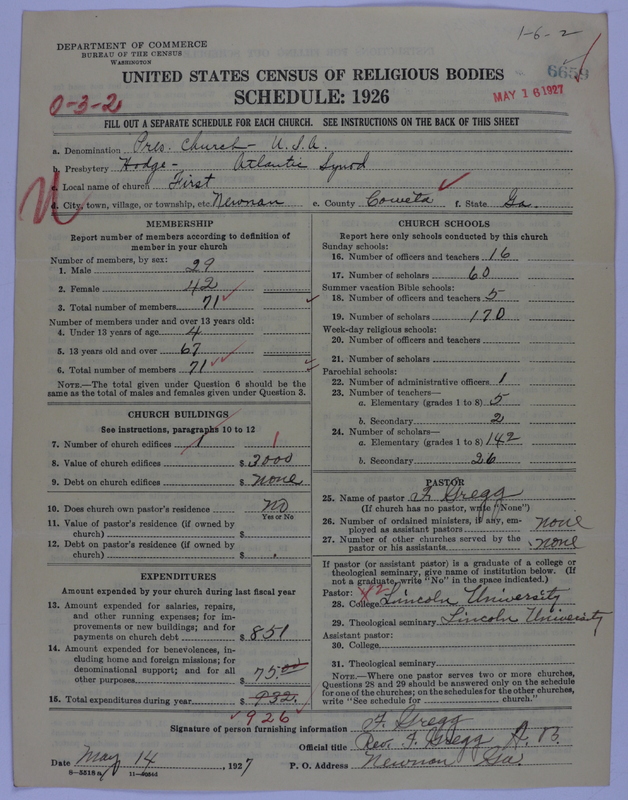 1-6-2
DEPARTMENT OF COMMERCE
BUREAU OF THE CENSUS
WASHINGTON
UNITED STATES CENSUS OF RELIGIOUS BODIES
6659
SCHEDULE: 1926
MAY 16 1927
0-3-2
FILL OUT A SEPARATE SCHEDULE FOR EACH CHURCH. SEE INSTRUCTIONS ON THE BACK OF THIS SHEET
a. Denomination Pres. Church - U.S.A.
b. Presbytery Hodge - Atlantic Synod
c. Local name of church First
d. City, town, village, or township, etc. Newnan e. County Coweta f. State Ga.
MEMBERSHIP
Report number of members according to definition of
member in your church
Number of members, by sex:
1. Male 29
2. Female 42
3. Total number of members 71
Number of members under and over 13 years old:
4. Under 13 years of age 4
5. 13 years old and over 67
6. Total number of members 71
NOTE.—The total given under Question 6 should be the
same as the total of males and females given under Question 3.
CHURCH BUILDINGS
See instructions, paragraphs 10 to 12
7. Number of church edifices 1 1
8. Value of church edifices $ 3000
9. Debt on church edifices $ none
10. Does church own pastor's residence no
Yes or No
11. Value of pastor's residence (if owned by
church) $
12. Debt on pastor's residence (if owned by
church) $
EXPENDITURES
Amount expended by your church during last fiscal year
13. Amount expended for salaries, repairs,
and other running expenses; for im-
provements or new buildings; and for
payments on church debt $ 851
14. Amount expended for benevolences, in-
cluding home and foreign missions; for
denominational support; and for all
other purposes $ 75.00
15. Total expenditures during year $ 932
926
CHURCH SCHOOLS
Report here only schools conducted by this church
Sunday schools:
16. Number of officers and teachers 16
17. Number of scholars 60
Summer vacation Bible schools:
18. Number of officers and teachers 5
19. Number of scholars 170
Week-day religious schools:
20. Number of officers and teachers
21. Number of scholars
Parochial schools:
22. Number of administrative officers 1
23. Number of teachers—
a. Elementary (grades 1 to 8) 5
b. Secondary 2
24. Number of scholars—
a. Elementary (grades 1 to 8) 142
b. Secondary 26
PASTOR
25. Name of pastor F. Gregg
(If church has no pastor, write "None")
26. Number of ordained ministers, if any, em-
ployed as assistant pastors none
27. Number of other churches served by the
pastor or his assistants none
If pastor (or assistant pastor) is a graduate of a college or
theological seminary, give name of institution below. (If
not a graduate, write "No" in the space indicated.)
Pastor: X2
28. College Lincoln University
29. Theological seminary Lincoln University
Assistant pastor:
30. College
31. Theological seminary
NOTE.—Where one pastor serves two or more churches,
Questions 28 and 29 should be answered only on the schedule
for one of the churches; on the schedules for the other churches,
write "See schedule for church."
Signature of person furnishing information F. Gregg
Official title Rev. F. Gregg A.B.
Date May 14, 1927 P. O. Address Newnan Ga
8-5518a 11-